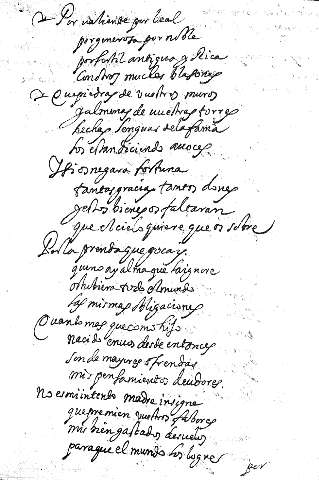 Por valiente por leal
por generosa por noble
por fertil antigua y Rica
con otros muchos blasones
Que piedras de vuestros muros
y almenas de vuestras torres
hechas lenguas de la fama
los estan diciendo a voces
Y si os negara fortuna
tantas gracias tantos dones
y estos bienes os faltaran
que el cielo quiere que os sobre
Por la prenda que gocais
que no ay alma que la ignore
os tubiera todo el mundo
las mismas obligaciones
Quanto mas que como hijo
nacido en vos desde entonces
son de mayores ofrendas
mis pensamientos deudores
No es mi intento madre insigne
que premien vuestros fabores
mis bien gastados desuelos
para que el mundo los logre